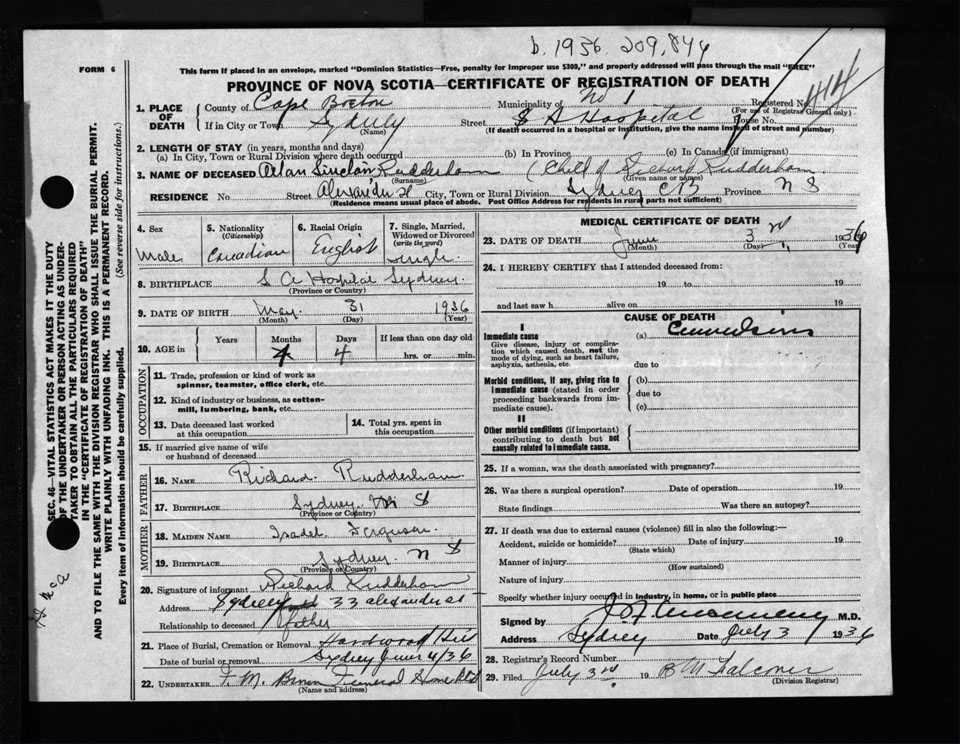 b. 1936. 209,844
FORM 6
This form if placed in an envelope, marked "Dominion Statistics—Free, penalty for improper use $300," and properly addressed will pass through the mail "FREE"
PROVINCE OF NOVA SCOTIA—CERTIFICATE OF REGISTRATION OF DEATH
1. PLACE OF DEATH
County of Cape Breton Municipality of No 1 Registered No.
(For use of Registrar General only)
If in City or Town Sydney Street S A Hospital House No.
(Name) (If death occurred in a hospital or institution, give the name instead of street and number)
2. LENGTH OF STAY (in years, months and days)
(a) In City, Town or Rural Division where death occurred (b) In Province (c) In Canada (if immigrant)
3. NAME OF DECEASED Allan Sinclair Rudderham (Child of Richard Rudderham
(Surname) (Given name or names)
RESIDENCE No Street Alexander St City, Town or Rural Division Sydney CB Province N S
(Residence means usual place of abode. Post Office Address for residents in rural parts not sufficient)
4. Sex Male
5. Nationality (Citizenship) Canadian
6. Racial Origin English
7. Single, Married, Widowed or Divorced (write the word) Single.
8. BIRTHPLACE S A Hospital Sydney.
(Province or Country)
9. DATE OF BIRTH May. 31 1936
(Month) (Day) (Year)
10. AGE in Years Months Days 4 If less than one day old
hrs. or min.
OCCUPATION
11. Trade, profession or kind of work as spinner, teamster, office clerk, etc.
12. Kind of industry or business, as cotton-mill, lumbering, bank, etc.
13. Date deceased last worked at this occupation
14. Total yrs. spent in this occupation
15. If married give name of wife or husband of deceased
FATHER
16. NAME Richard Rudderham
17. BIRTHPLACE Sydney. N S
(Province or Country)
MOTHER
18. MAIDEN NAME Isadel Ferguson.
19. BIRTHPLACE Sydney. N S
(Province or Country)
20. Signature of informant Richard Rudderham
Address Sydney 33 Alexander St
Relationship to deceased father
21. Place of Burial, Cremation or Removal Hardwood Hill
Date of burial or removal Sydney June 4/36
22. UNDERTAKER Funeral Home
(Name and address)
MEDICAL CERTIFICATE OF DEATH
23. DATE OF DEATH June 3rd 1936
(Month) (Day) (Year)
24. I HEREBY CERTIFY that I attended deceased from:
19 to 19
and last saw h alive on 19
CAUSE OF DEATH
I
Immediate cause (a) Convulsions
Give disease, injury or complication which caused death, not the mode of dying, such as heart failure, asphyxia, asthenia, etc.
due to
Morbid conditions, if any, giving rise to immediate cause (stated in order proceeding backwards from immediate cause).
(b)
due to
(c)
II
Other morbid conditions (if important) contributing to death but not causally related to immediate cause.
25. If a woman, was the death associated with pregnancy?
26. Was there a surgical operation? Date of operation 19
State findings Was there an autopsy?
27. If death was due to external causes (violence) fill in also the following:—
Accident, suicide or homicide? Date of injury 19
(State which)
Manner of injury
(How sustained)
Nature of injury
Specify whether injury occurred in industry, in home, or in public place
Signed by M.D.
Address Sydney Date July 3 1936
28. Registrar's Record Number
29. Filed July 3rd 19 B M Falconer
(Division Registrar)
SEC. 46—VITAL STATISTICS ACT MAKES IT THE DUTY
OF THE UNDERTAKER OR PERSON ACTING AS UNDER-
TAKER TO OBTAIN ALL THE PARTICULARS REQUIRED
IN THE "CERTIFICATE OF REGISTRATION OF DEATH"
AND TO FILE THE SAME WITH THE DIVISION REGISTRAR WHO SHALL ISSUE THE BURIAL PERMIT.
WRITE PLAINLY WITH UNFADING INK. THIS IS A PERMANENT RECORD.
Every item of information should be carefully supplied. (See reverse side for instructions.)